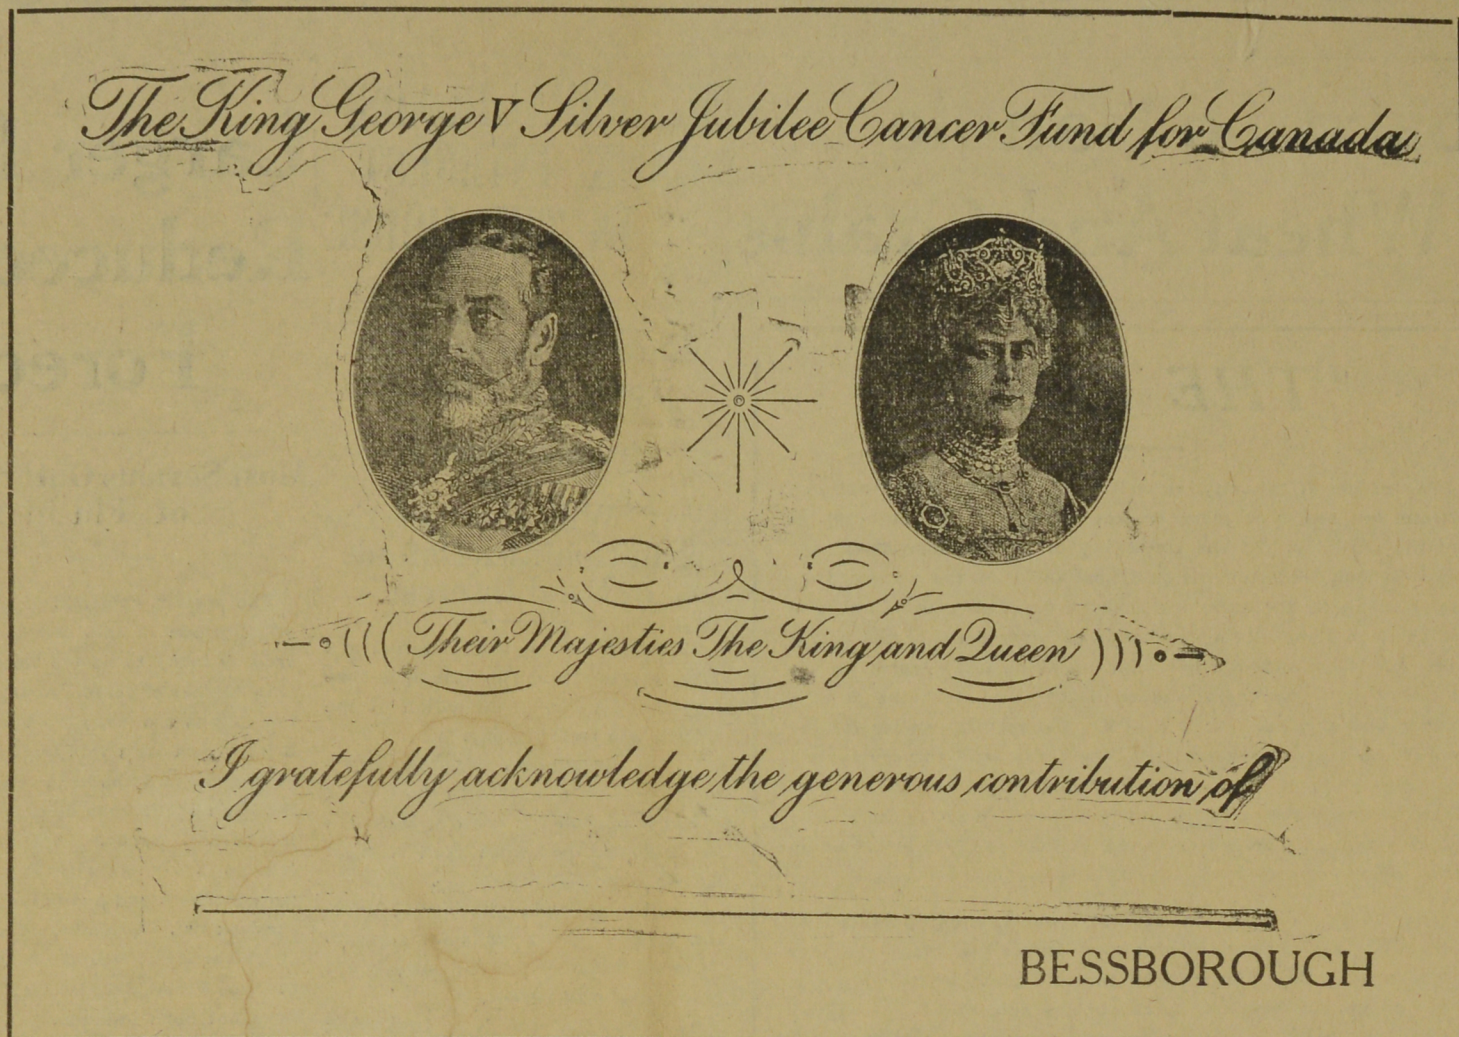 The King George V Silver Jubilee Cancer Fund for Canada
Their Majesties The King and Queen
I gratefully acknowledge the generous contribution of
BESSBOROUGH